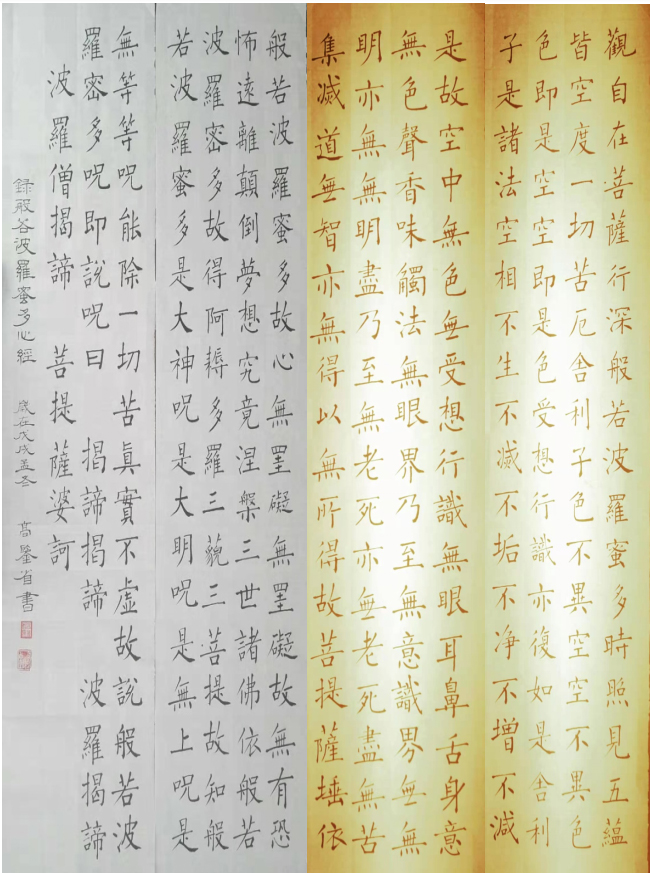 觀自在菩薩行深般若波羅蜜多時照見五蘊
皆空度一切苦厄舍利子色不異空空不異色
色即是空空即是色受想行識亦復如是舍利
子是諸法空相不生不滅不垢不净不增不減
是故空中無色無受想行識無眼耳鼻舌身意
無色聲香味觸法無眼界乃至無意識界無無
明亦無無明盡乃至無老死亦無老死盡無苦
集滅道無智亦無得以無所得故菩提薩埵依
般若波羅蜜多故心無罣礙無罣礙故無有恐
怖遠離顛倒夢想究竟涅槃三世諸佛依般若
波羅密多故得阿耨多羅三藐三菩提故知般
若波羅蜜多是大神呪是大明呪是無上呪是
無等等呪能除一切苦眞實不虛故説般若波
羅密多呪即説呪曰 揭諦揭諦 波羅揭諦
波羅僧揭諦 菩提薩婆訶
録般若波羅蜜多心經 歲在戊戌孟冬 高鑒省書